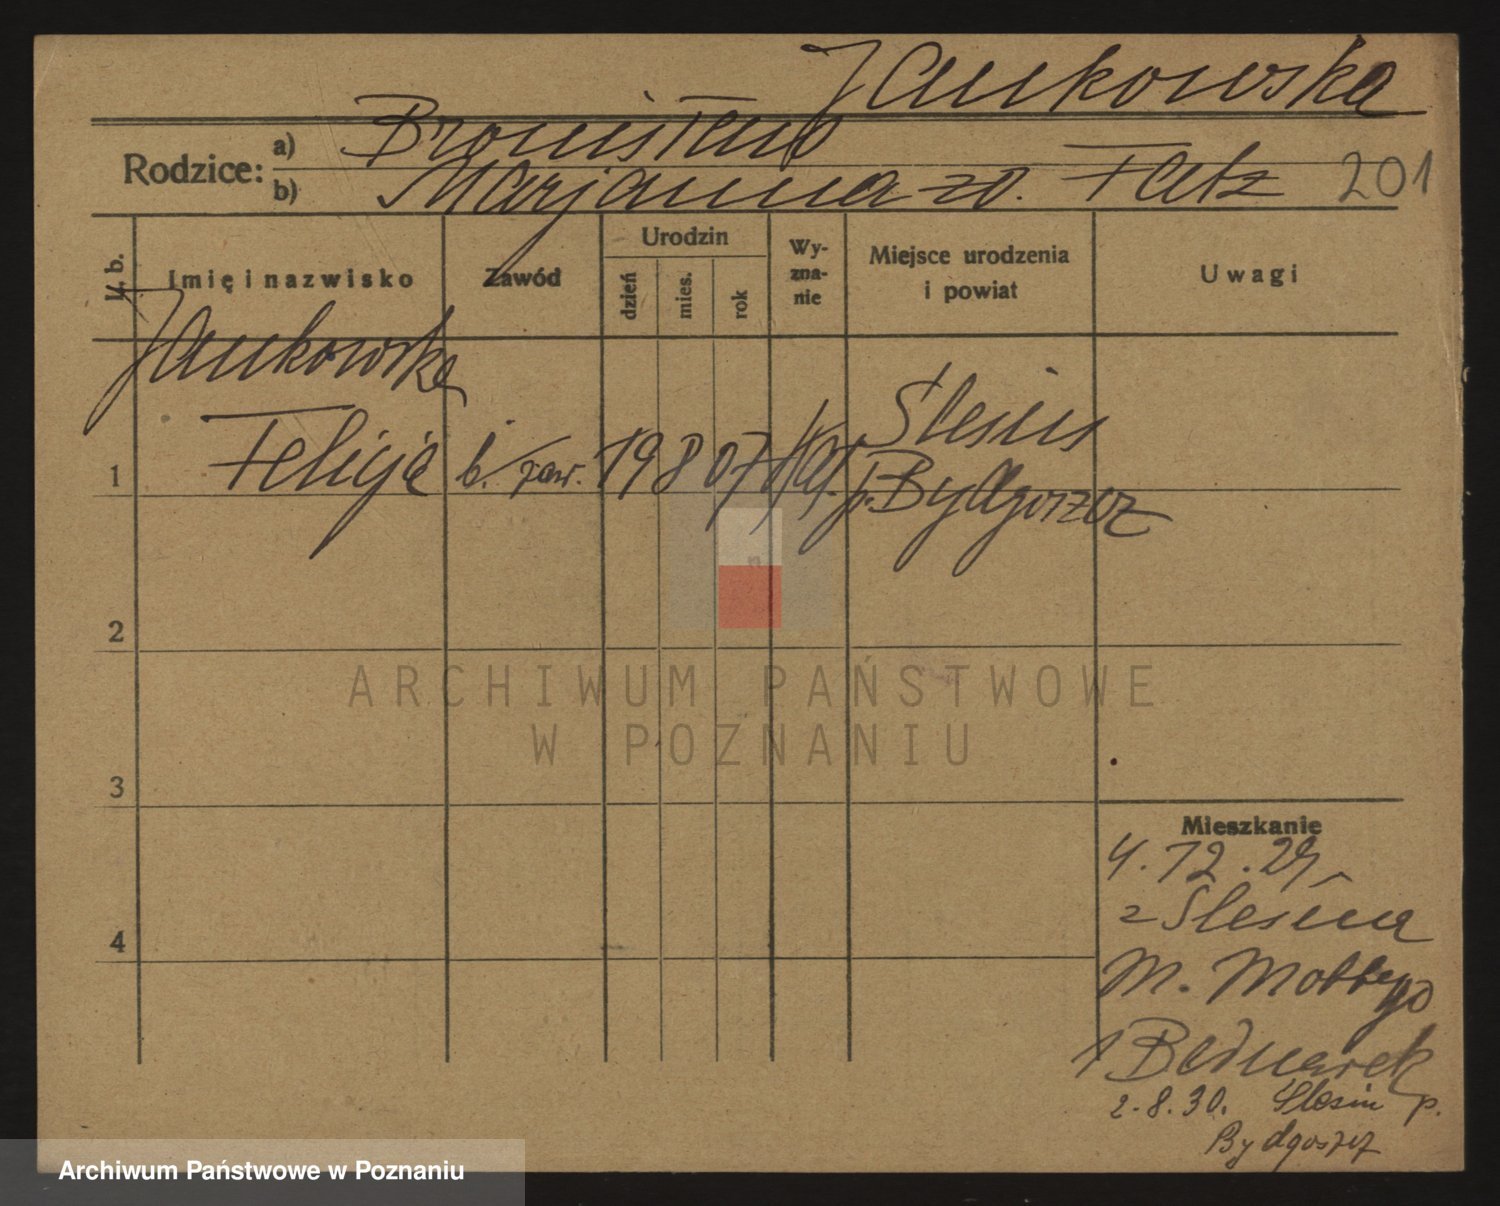 Jankowska
Rodzice: a) Bronisław
b) Marjanna zd. Felz 201
l. b.
Imię i nazwisko
Zawód
Urodzin
dzień
mies.
rok
Wy-
zna-
nie
Miejsce urodzenia
i powiat
Uwagi
Jankowska
1 Felicja b. zaw. 19 8 07 kat. Ślesin
p. Bydgoszcz
2
3
4
ARCHIWUM PAŃSTWOWE
W POZNANIU
Mieszkanie
4.12.29
z Ślesina
M. Mottego
1 Bednarek
2.8.30. Ślesin p.
Bydgoszcz
Archiwum Państwowe w Poznaniu